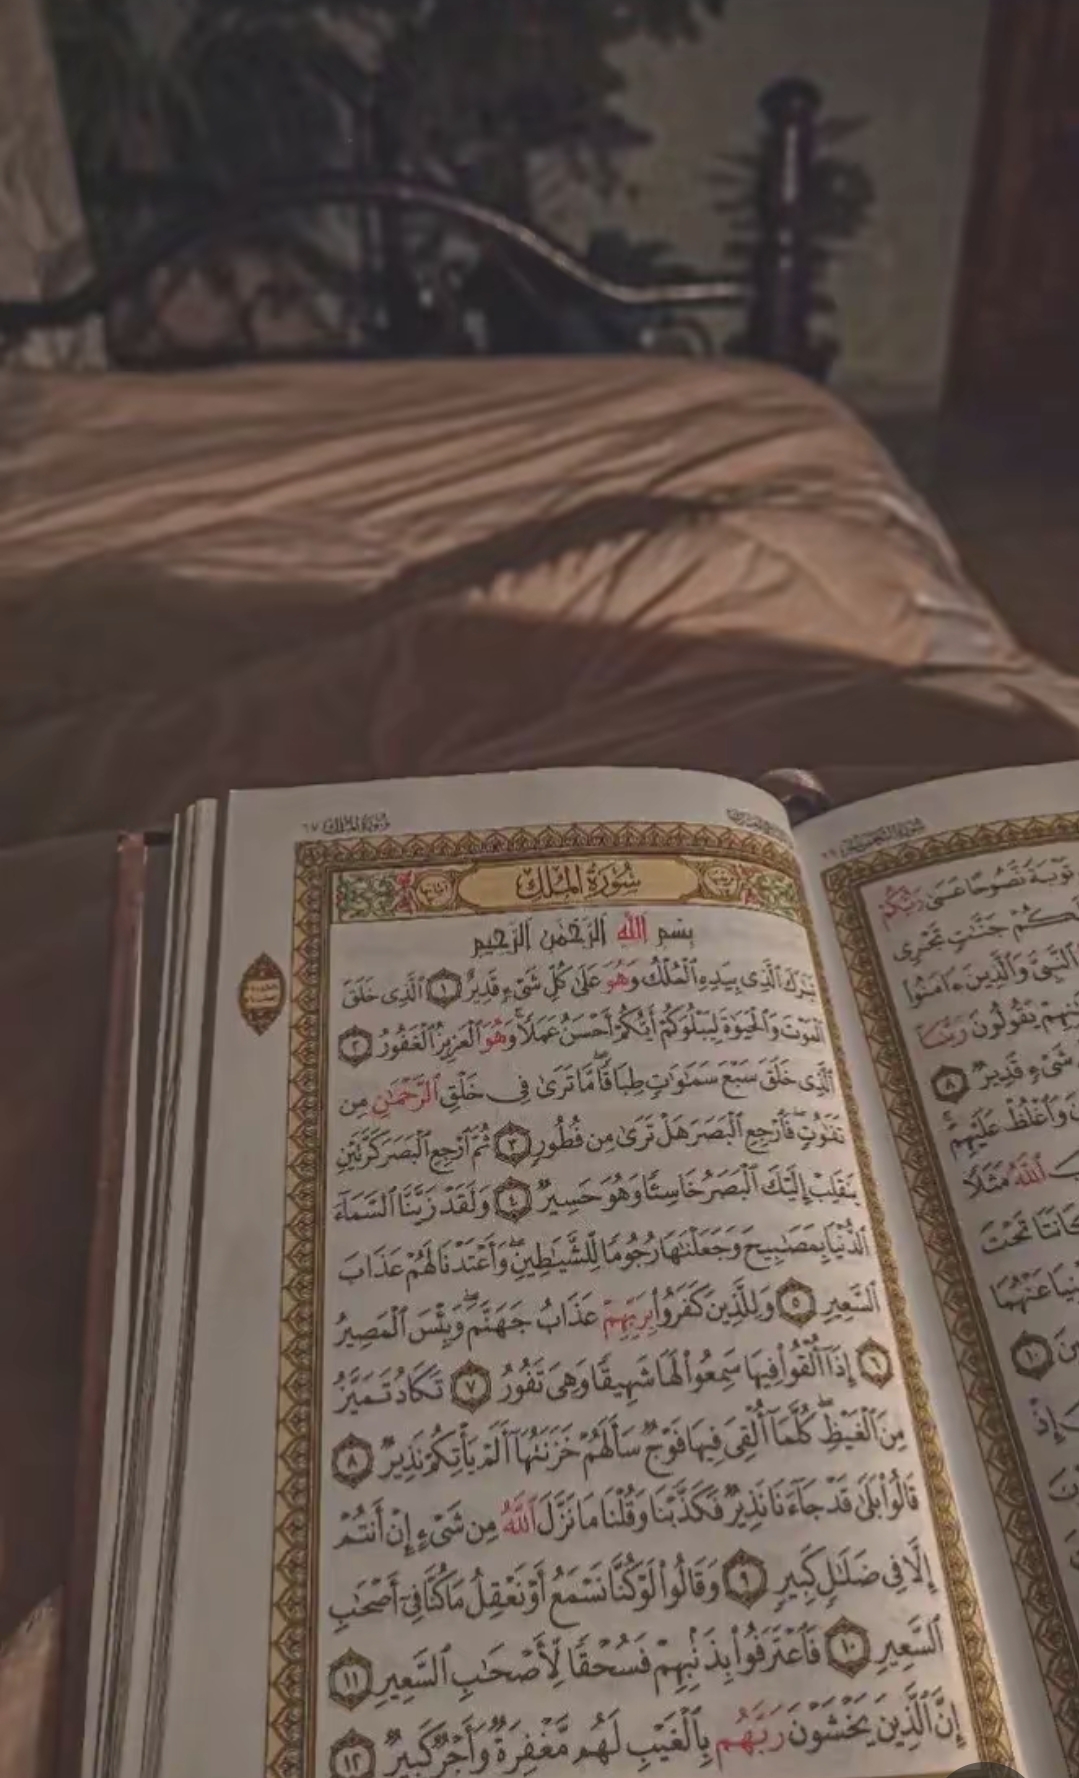 سُورَةُ المُلْكِ ٦٧
سُورَةُ المُلْكِ
بِسْمِ ٱللَّهِ ٱلرَّحْمَٰنِ ٱلرَّحِيمِ
تَبَٰرَكَ ٱلَّذِى بِيَدِهِ ٱلْمُلْكُ وَهُوَ عَلَىٰ كُلِّ شَىْءٍ قَدِيرٌ ١ ٱلَّذِى خَلَقَ
ٱلْمَوْتَ وَٱلْحَيَوٰةَ لِيَبْلُوَكُمْ أَيُّكُمْ أَحْسَنُ عَمَلًا ۚ وَهُوَ ٱلْعَزِيزُ ٱلْغَفُورُ ٢
ٱلَّذِى خَلَقَ سَبْعَ سَمَٰوَٰتٍ طِبَاقًا ۖ مَّا تَرَىٰ فِى خَلْقِ ٱلرَّحْمَٰنِ مِن
تَفَٰوُتٍ ۖ فَٱرْجِعِ ٱلْبَصَرَ هَلْ تَرَىٰ مِن فُطُورٍ ٣ ثُمَّ ٱرْجِعِ ٱلْبَصَرَ كَرَّتَيْنِ
يَنقَلِبْ إِلَيْكَ ٱلْبَصَرُ خَاسِئًا وَهُوَ حَسِيرٌ ٤ وَلَقَدْ زَيَّنَّا ٱلسَّمَآءَ
ٱلدُّنْيَا بِمَصَٰبِيحَ وَجَعَلْنَٰهَا رُجُومًا لِّلشَّيَٰطِينِ ۖ وَأَعْتَدْنَا لَهُمْ عَذَابَ
ٱلسَّعِيرِ ٥ وَلِلَّذِينَ كَفَرُوا۟ بِرَبِّهِمْ عَذَابُ جَهَنَّمَ ۖ وَبِئْسَ ٱلْمَصِيرُ
٦ إِذَآ أُلْقُوا۟ فِيهَا سَمِعُوا۟ لَهَا شَهِيقًا وَهِىَ تَفُورُ ٧ تَكَادُ تَمَيَّزُ
مِنَ ٱلْغَيْظِ ۖ كُلَّمَآ أُلْقِىَ فِيهَا فَوْجٌ سَأَلَهُمْ خَزَنَتُهَآ أَلَمْ يَأْتِكُمْ نَذِيرٌ ٨
قَالُوا۟ بَلَىٰ قَدْ جَآءَنَا نَذِيرٌ فَكَذَّبْنَا وَقُلْنَا مَا نَزَّلَ ٱللَّهُ مِن شَىْءٍ إِنْ أَنتُمْ
إِلَّا فِى ضَلَٰلٍ كَبِيرٍ ٩ وَقَالُوا۟ لَوْ كُنَّا نَسْمَعُ أَوْ نَعْقِلُ مَا كُنَّا فِىٓ أَصْحَٰبِ
ٱلسَّعِيرِ ١٠ فَٱعْتَرَفُوا۟ بِذَنۢبِهِمْ فَسُحْقًا لِّأَصْحَٰبِ ٱلسَّعِيرِ ١١
إِنَّ ٱلَّذِينَ يَخْشَوْنَ رَبَّهُم بِٱلْغَيْبِ لَهُم مَّغْفِرَةٌ وَأَجْرٌ كَبِيرٌ ١٢
تَوْبَةً نَّصُوحًا عَسَىٰ رَبُّكُمْ
جَنَّٰتٍ تَجْرِى
ٱلنَّبِىَّ وَٱلَّذِينَ ءَامَنُوا۟
يَقُولُونَ رَبَّنَآ
شَىْءٍ قَدِيرٌ ٨
وَٱغْلُظْ عَلَيْهِمْ
ٱللَّهُ مَثَلًا
كَانَتَا تَحْتَ
عَنْهُمَا
١٠
إِذْ